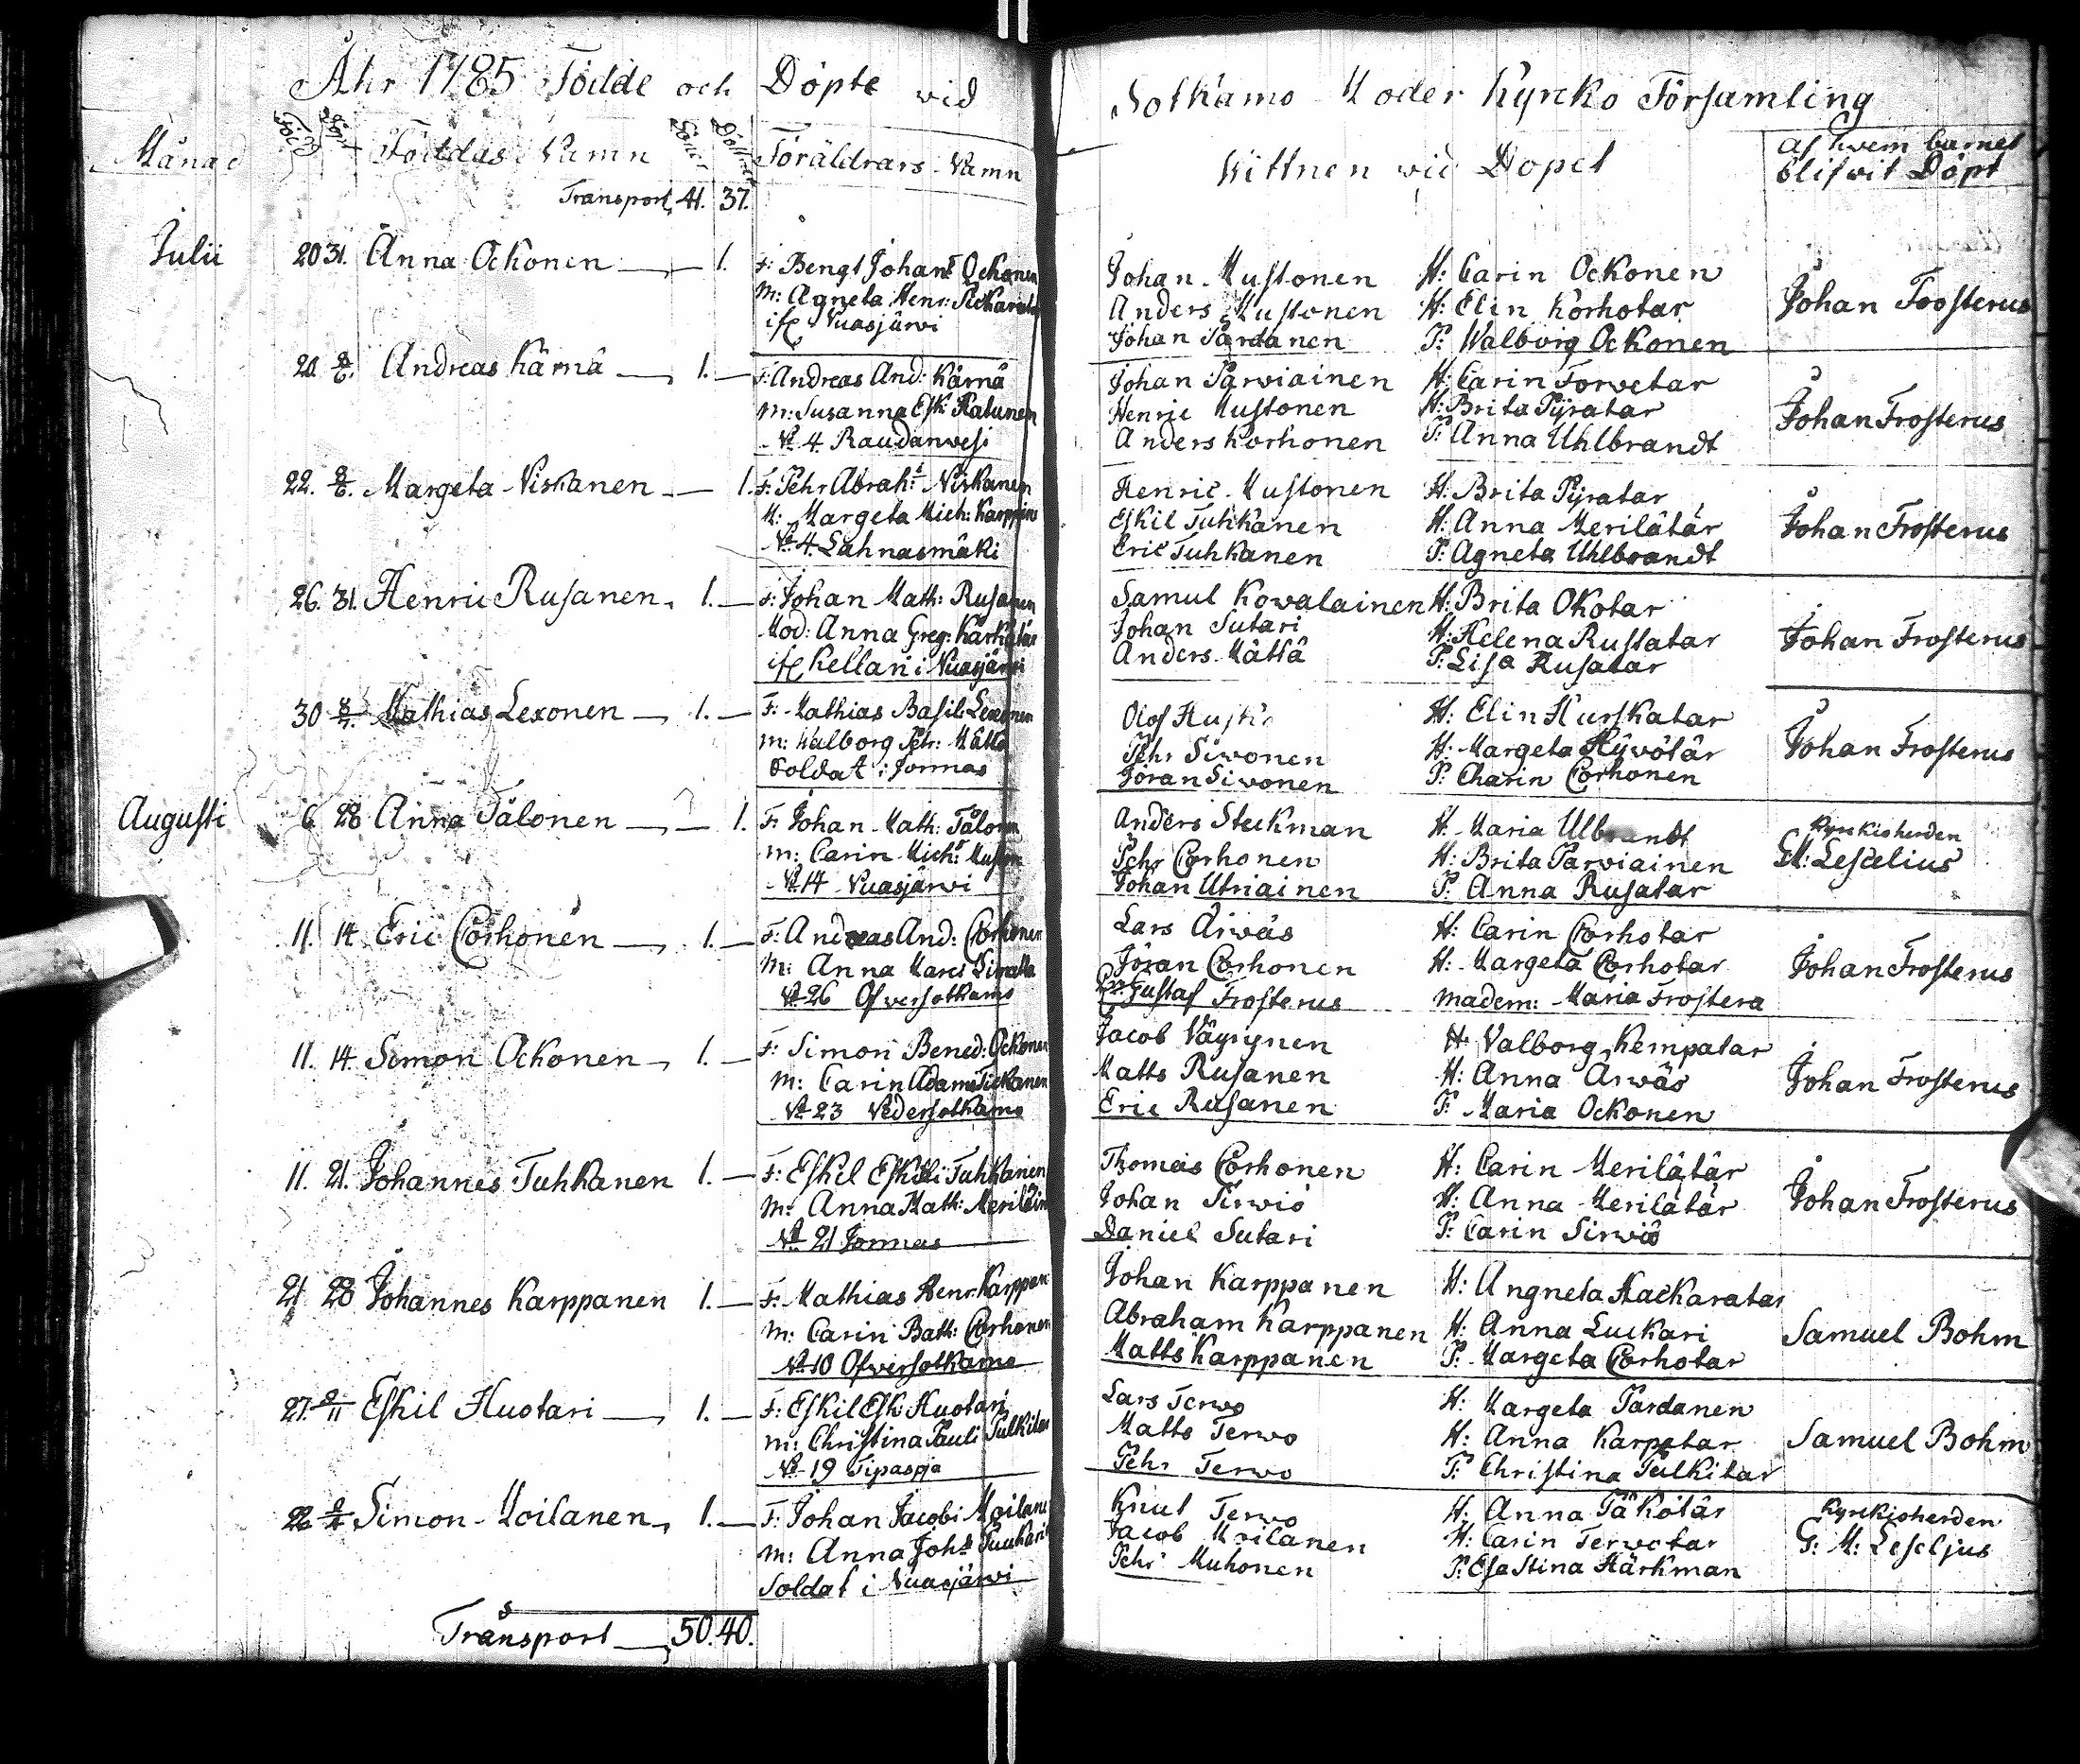 Åhr 1785 Födde och Döpte vid
Månad Född Döpt Föddas Namn Söner Döttrar Föräldrars Namn
Transport, 41. 37.
Julii 20 31. Anna Ockonen 1. F: Bengt Johans Ockonen
M: Agneta Henr:
Nuasjärwi
20. 8/6. Andreas Kärnä 1. F: Andreas And: Kärnä
M: Susanna Esk: Halunen
No 4. Raudanwesi
22. 8/6. Margeta Niskanen 1. F: Pehr Abrah: Niskanen
M: Margeta Mich:
No 4. Lahnasmäki
26. 31. Henric Rusanen, 1. F: Johan Math: Rusanen
Mod: Anna Greg:
Kellari i Nuasjärwi
30 Mathias Lexonen 1. F: Mathias Basil: Lexonen
M: Walborg Pehr: Mättä
Soldat i Jormas
Augusti 6 28 Anna Tålonen 1. F: Johan Math: Tålonen
M: Carin Mich:
No 14 Nuasjärwi
11. 14 Eric Corhonen 1. F: Andreas And: Corhonen
M: Anna Marcs
No 26 Ofversotkamo
11. 14 Simon Ockonen 1. F: Simon Bened: Ockonen
M: Carin Adams Tickanen
No 23 Nedersotkamo
11. 21. Johannes Tuhkanen 1. F: Eskil Eskilli Tuhkanen
M: Anna Math:
No 21 Jormas
21 28 Johannes Karppanen 1. F: Mathias Henr: Karppanen
M: Carin Bath: Corhonen
No 10 Ofversotkamo
27. 9/11 Eskil Huotari 1. F: Eskil Esk: Huotari
M: Christina Pauli Pulkitar
No 19 Tipasoja
Simon Moilanen, 1. F: Johan Jacobi Moilanen
M: Anna Joh:
Soldat i Nuasjärwi
Transport 50. 40.
Sotkamo Moder Kyrcko Församling
Wittnen vid Dopet
af hvem barnet
blifvit Döpt
Johan Mustonen H: Carin Ockonen
Anders Mustonen H: Elin Korhotar Johan Frosterus
Johan Pardanen P: Walborg Ockonen
Johan Parviainen H: Carin Torvetar
Henric Mustonen H: Brita Pyratar Johan Frosterus
Anders Korhonen P: Anna Uhlbrandt
Henric Mustonen H: Brita Pyratar
Eskil Tuhkanen H: Anna Merilätär Johan Frosterus
Eric Tuhkanen P: Agneta Uhlbrandt
Samul Kowalainen H: Brita Okotar
Johan Sutari H: Helena Rustatar Johan Frosterus
Anders Mättä P: Lisa Rusatar
Olof H: Elin Hurskatar
Pehr Sivonen H: Margeta Hyvötär Johan Frosterus
Jöran Sivonen P: Charin Corhonen
Anders Steckman H: Maria Ulbrandt Kyrckioherden
Pehr Corhonen H: Brita Parviainen G: M: Lescelius
Johan Utriainen P: Anna Rusatar
Lars Arwäs H: Carin Corhotar
Jöran Corhonen H: Margeta Corhotar Johan Frosterus
Gustaf Frosterus Madem: Maria Frostera
Jacob Väyrynen H: Valborg Kempatar
Matts Rusanen H: Anna Arwäs Johan Frosterus
Eric Rusanen P: Maria Ockonen
Thomas Corhonen H: Carin Merilätär
Johan Sirwiö H: Anna Merilätär Johan Frosterus
Daniel Sutari P: Carin Sirwiö
Johan Karppanen H: Angneta Hackaratar
Abraham Karppanen H: Anna Luckari Samuel Bohm
Matts Karppanen P: Margeta Corhotar
Lars Terwo H: Margeta Pardanen
Matts Terwo H: Anna Karpetar Samuel Bohm
Pehr Terwo P: Christina Pulkitar
Knut Terwo H: Anna Täkötär Kyrckioherden
Jacob Moilanen H: Carin Terwotar G: M: Leseljus
Pehr Muhonen P: Härkman